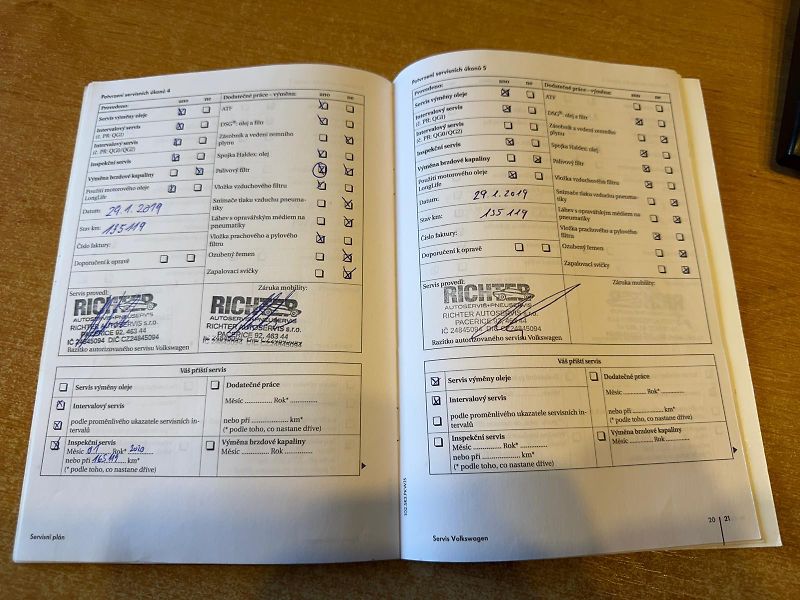 Potvrzení servisních úkonů 4
Provedeno: ano ne
Servis výměny oleje
Intervalový servis
(č. PR: QG1)
Intervalový servis
(č. PR: QG0/QG2)
Inspekční servis
Výměna brzdové kapaliny
Použití motorového oleje
LongLife
Datum: 29.1.2019
Stav km: 135119
Číslo faktury:
Doporučení k opravě
Dodatečné práce – výměna: ano ne
ATF
DSG®: olej a filtr
Zásobník a vedení zemního
plynu
Spojka Haldex: olej
Palivový filtr
Vložka vzduchového filtru
Snímače tlaku vzduchu pneuma-
tiky
Láhev s opravářským médiem na
pneumatiky
Vložka prachového a pylového
filtru
Ozubený řemen
Zapalovací svíčky
Servis provedl:
RICHTER
AUTOSERVIS+PNEUSERVIS
RICHTER AUTOSERVIS s.r.o.
PACEŘICE 92, 463 44
IČ 24845094 DIČ CZ24845094
Razítko autorizovaného servisu Volkswagen
Záruka mobility:
RICHTER
AUTOSERVIS+PNEUSERVIS
RICHTER AUTOSERVIS s.r.o.
PACEŘICE 92, 463 44
IČ 24845094 DIČ CZ24845094
Váš příští servis
Servis výměny oleje
Intervalový servis
podle proměnlivého ukazatele servisních in-
tervalů
Inspekční servis
Měsíc 01 Rok* 2020
nebo při 165119 km*
(* podle toho, co nastane dříve)
Dodatečné práce
Měsíc Rok*
nebo při km*
(* podle toho, co nastane dříve)
Výměna brzdové kapaliny
Měsíc Rok
Servisní plán
Potvrzení servisních úkonů 5
Provedeno: ano ne
Servis výměny oleje
Intervalový servis
(č. PR: QG1)
Intervalový servis
(č. PR: QG0/QG2)
Inspekční servis
Výměna brzdové kapaliny
Použití motorového oleje
LongLife
Datum: 29.1.2019
Stav km: 135119
Číslo faktury:
Doporučení k opravě
Dodatečné práce – výměna: ano ne
ATF
DSG®: olej a filtr
Zásobník a vedení zemního
plynu
Spojka Haldex: olej
Palivový filtr
Vložka vzduchového filtru
Snímače tlaku vzduchu pneuma-
tiky
Láhev s opravářským médiem na
pneumatiky
Vložka prachového a pylového
filtru
Ozubený řemen
Zapalovací svíčky
Servis provedl:
RICHTER
AUTOSERVIS+PNEUSERVIS
RICHTER AUTOSERVIS s.r.o.
PACEŘICE 92, 463 44
IČ 24845094 DIČ CZ24845094
Razítko autorizovaného servisu Volkswagen
Záruka mobility:
Váš příští servis
Servis výměny oleje
Intervalový servis
podle proměnlivého ukazatele servisních in-
tervalů
Inspekční servis
Měsíc Rok*
nebo při km*
(* podle toho, co nastane dříve)
Dodatečné práce
Měsíc Rok*
nebo při km*
(* podle toho, co nastane dříve)
Výměna brzdové kapaliny
Měsíc Rok
Servis Volkswagen
20 21